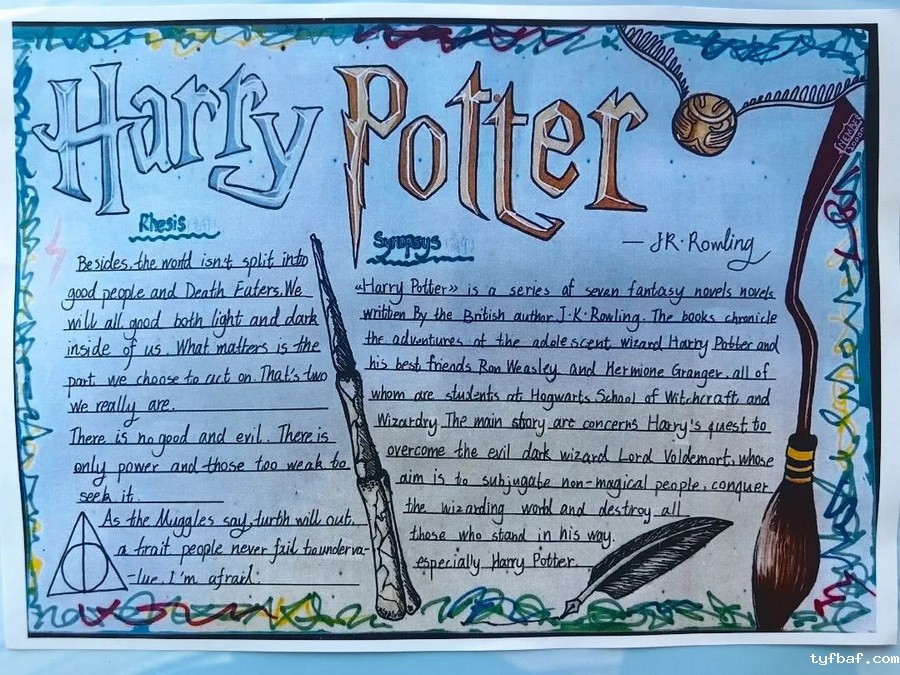 Harry Potter
Rhesis
Besides, the world isn't split into
good people and Death Eaters. We
will all good both light and dark
inside of us. What matters is the
part we choose to act on. That's two
we really are.
There is no good and evil. There is
only power and those too weak to
seek it.
As the Muggles say, turth will out.
a trait people never fail to underva-
-lue. I'm afrail.
Synopsys
— J·K·Rowling
«Harry Potter» is a series of seven fantasy novels novels
written By the British author J·K·Rowling. The books chronicle
the adventures of the adolescent wizard Harry Potter and
his best friends Ron Weasley and Hermione Granger, all of
whom are students at Hogwarts School of Witchcraft and
Wizardry. The main story are concerns Harry's quest to
overcome the evil dark wizard Lord Voldemort, whose
aim is to subjugate non-magical people, conquer
the wizarding world and destroy all
those who stand in his way.
especially Harry Potter.
tyfbaf.com